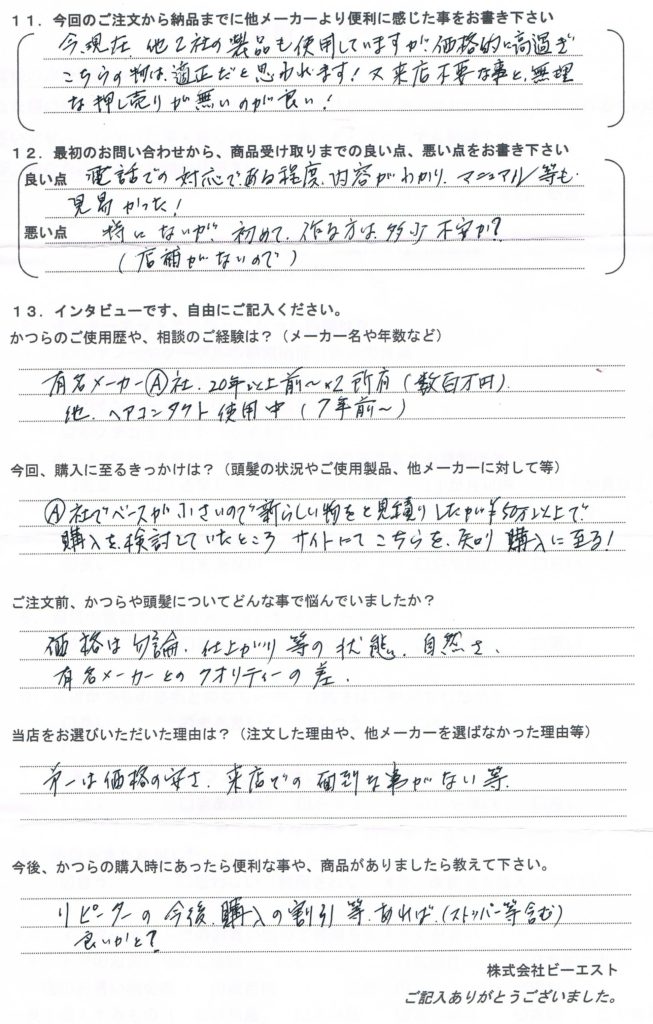 １１．今回のご注文から納品までに他メーカーより便利に感じた事をお書き下さい
今、現在、他２社の製品も使用していますが、価格的に高過ぎ
こちらの物は、適正だと思われます！又来店不要な事と、無理
な押し売りが無いのが良い！
１２．最初のお問い合わせから、商品受け取りまでの良い点、悪い点をお書き下さい
良い点 電話での対応である程度、内容がわかり、マニュアル等も
見易かった！
悪い点 特にないが、初めて、作る方は、多少不安か？
（店舗がないので）
１３．インタビューです、自由にご記入ください。
かつらのご使用歴や、相談のご経験は？（メーカー名や年数など）
有名メーカーⒶ社、20年以上前〜×2所有（数百万円）
他、ヘアコンタクト使用中（7年前〜）
今回、購入に至るきっかけは？（頭髪の状況やご使用製品、他メーカーに対して等）
Ⓐ社でベースが小さいので新らしい物をと見積りしたが¥50万以上で
購入を、検討していたところ サイトにてこちらを、知り購入に至る！
ご注文前、かつらや頭髪についてどんな事で悩んでいましたか？
価格は勿論、仕上がり等の状態、自然さ、
有名メーカーとのクオリティーの差、
当店をお選びいただいた理由は？（注文した理由や、他メーカーを選ばなかった理由等）
第一は価格の安さ、来店での面倒な事がない等、
今後、かつらの購入時にあったら便利な事や、商品がありましたら教えて下さい。
リピーターの今後、購入の割引等、あれば、（ストッパー等含む）
良いかと？
株式会社ビーエスト
ご記入ありがとうございました。